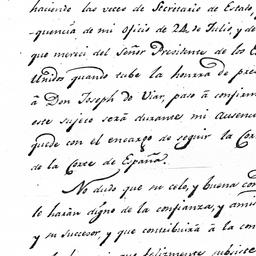 haciendo las veces de Secretario de Estado,
-quencia de mi oficio de 24 de Julio, y de
que merecí del Señor Presidente de los E
Unidos quando tube la honra de pre
à Don Joseph de Viar, paso à confirma
este sujeto será durante mi ausenc
quede con el encargo de seguir la Cor
de la Corte de España.
No dudo que su celo, y buena con
le harán digno de la confianza, y amis
y su succesor, y que contribuirá à la con
que felizmente subsiste